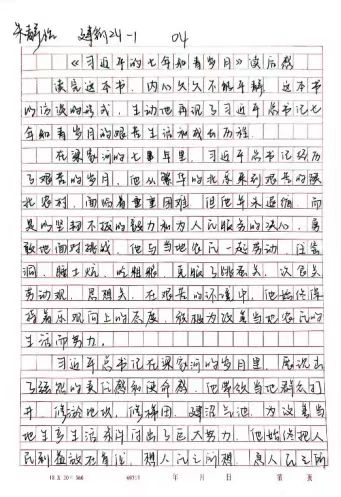 建筑24-1 04
《习近平的七年知青岁月》读后感
读完这本书，内心久久不能平静，这本书
以访谈的形式，生动地再现了习近平总书记七
年知青岁月的艰苦生活和成长历程。
在梁家河的七年里，习近平总书记经历
了艰苦的岁月，他从繁华的北京来到艰苦的陕
北农村，面临着重重困难，但他并未退缩，而
是以坚韧不拔的毅力和为人民服务的决心，勇
敢地面对挑战，他与当地农民一起劳动，住窑
洞，睡土炕，吃粗粮，克服了跳蚤关，饮食关
劳动观，思想关，在艰苦的环境中，他始终保
持着乐观向上的态度，积极为改善当地农民的
生活而努力。
习近平总书记在梁家河的岁月里，展现出
了强烈的责任感和使命感，他带领当地群众打
井，修淤地坝，修梯田，建沼气池，为改善当
地生产生活条件付出了巨大努力，他始终把人
民利益放在首位，想人民之所想，急人民之所
18 X 20 = 360 年 月 日 第 页